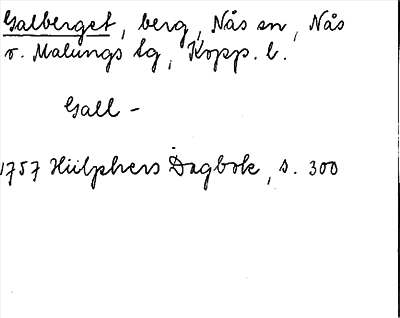 Galberget, berg, Nås sn, Nås
o. Malungs tg, Kopp. l.
Gall -
1757 Hülphers Dagbok, s. 300